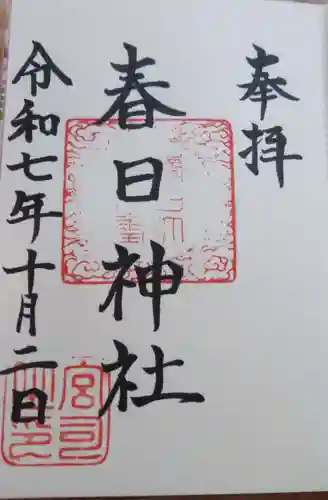 奉拝
春日神社
令和七年十月二日
宮司